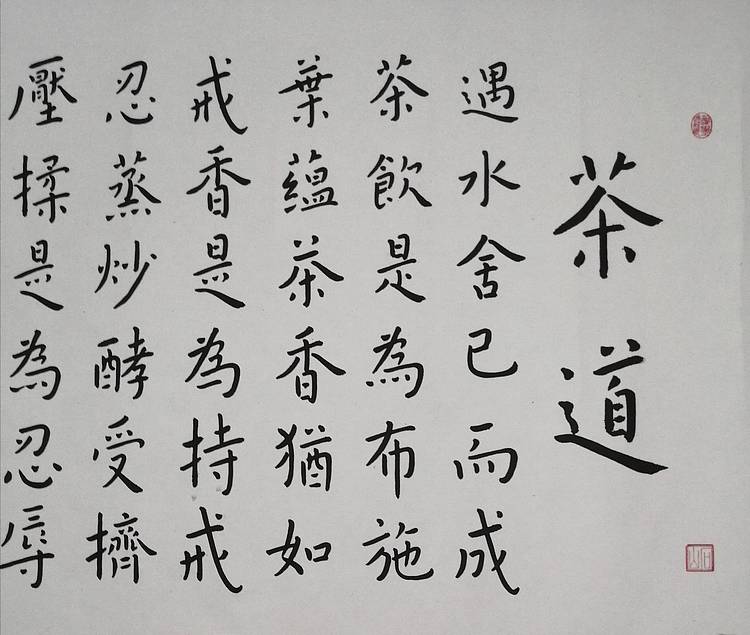 茶道
遇水舍己而成
茶飲是為布施
葉蘊茶香猶如
戒香是為持戒
忍蒸炒酵受擠
壓揉是為忍辱